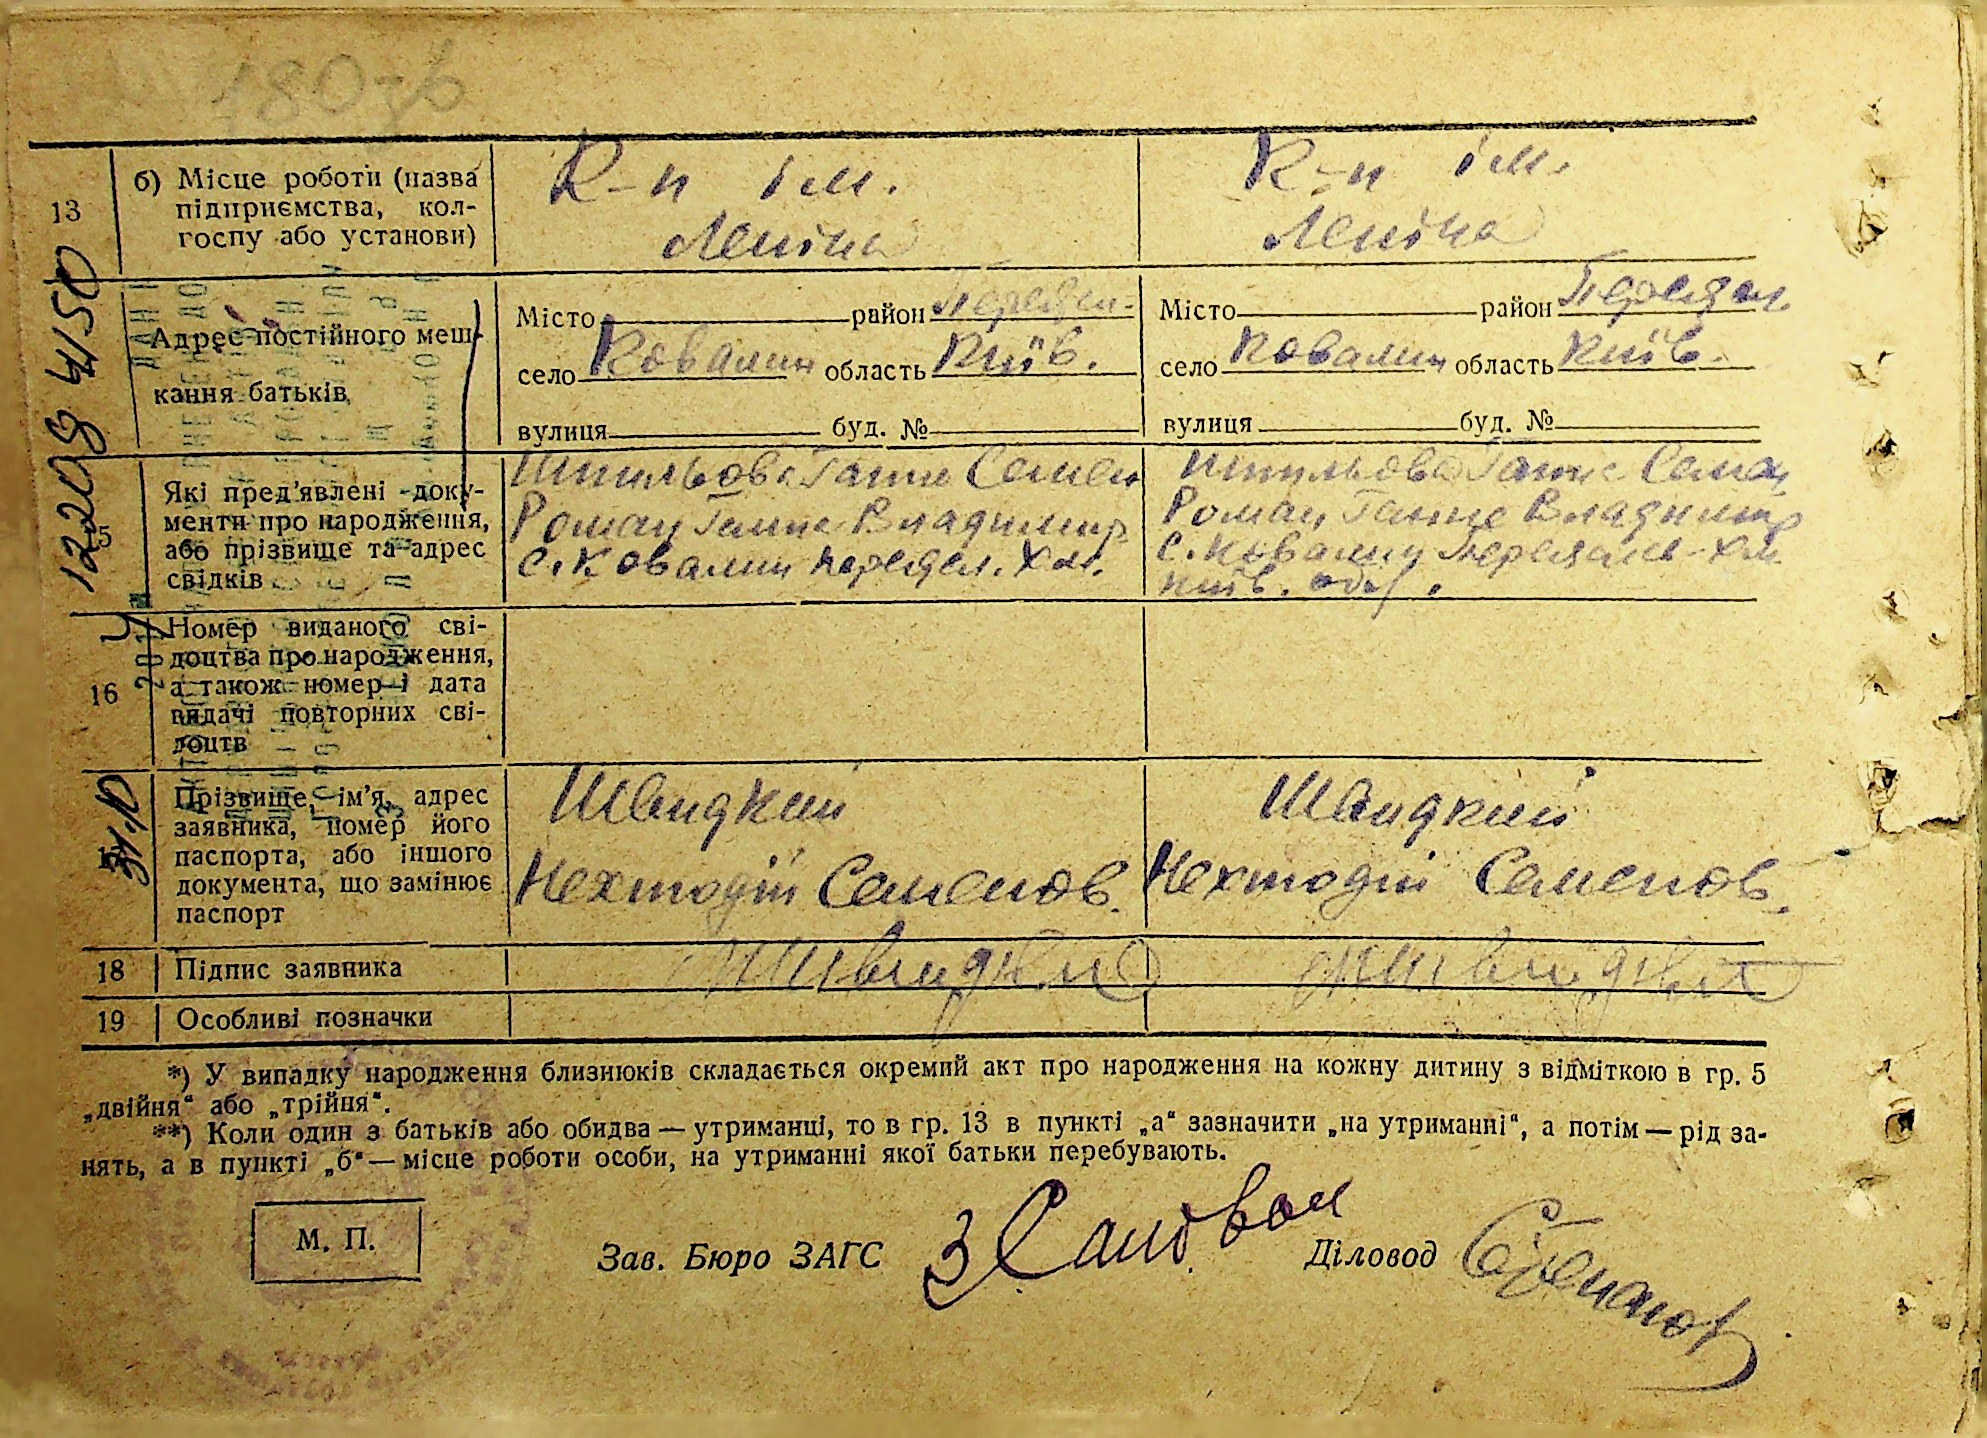 180зв
13
б) Місце роботи (назва
підприємства, кол-
госпу або установи)
К-п ім.
Леніна
К-п ім.
Леніна
Адрес постійного меш-
кання батьків
Місто район Переясл.
село Ковалин область Київ.
вулиця буд. №
Місто район Переясл.
село Ковалин область Київ.
вулиця буд. №
Які пред'явлені доку-
менти про народження,
або прізвище та адрес
свідків
Шпильова Ганна Семен
Роман Ганна Владимир
с. Ковалин Переясл. Хм.
Шпильова Ганна Семен
Роман Ганна Владимир
с. Ковалин Переясл-Хм
Київ. обл.
16
Номер виданого сві-
доцтва про народження,
а також номер і дата
видачі повторних сві-
доцтв
Прізвище, ім'я, адрес
заявника, номер його
паспорта, або іншого
документа, що замінює
паспорт
Швидкий
Нехтодій Семенов.
Швидкий
Нехтодій Семенов.
18
Підпис заявника
19
Особливі позначки
*) У випадку народження близнюків складається окремий акт про народження на кожну дитину з відміткою в гр. 5
„двійня“ або „трійня“.
**) Коли один з батьків або обидва — утриманці, то в гр. 13 в пункті „а“ зазначити „на утриманні“, а потім — рід за-
нять, а в пункті „б“ — місце роботи особи, на утриманні якої батьки перебувають.
М. П.
Зав. Бюро ЗАГС
Діловод